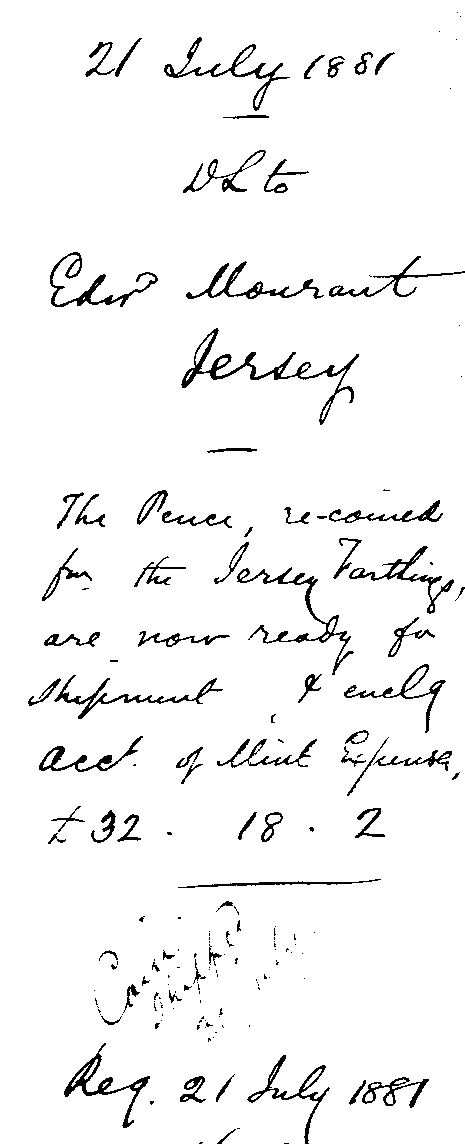 21 July 1881
DL to
Edwd Mourant
Jersey
The Pence, re-coined
from the Jersey Farthings,
are now ready for
shipment, & enclg
Acct. of Mint Expense,
£32 . 18 . 2
Coin
shipped
Reg. 21 July 1881